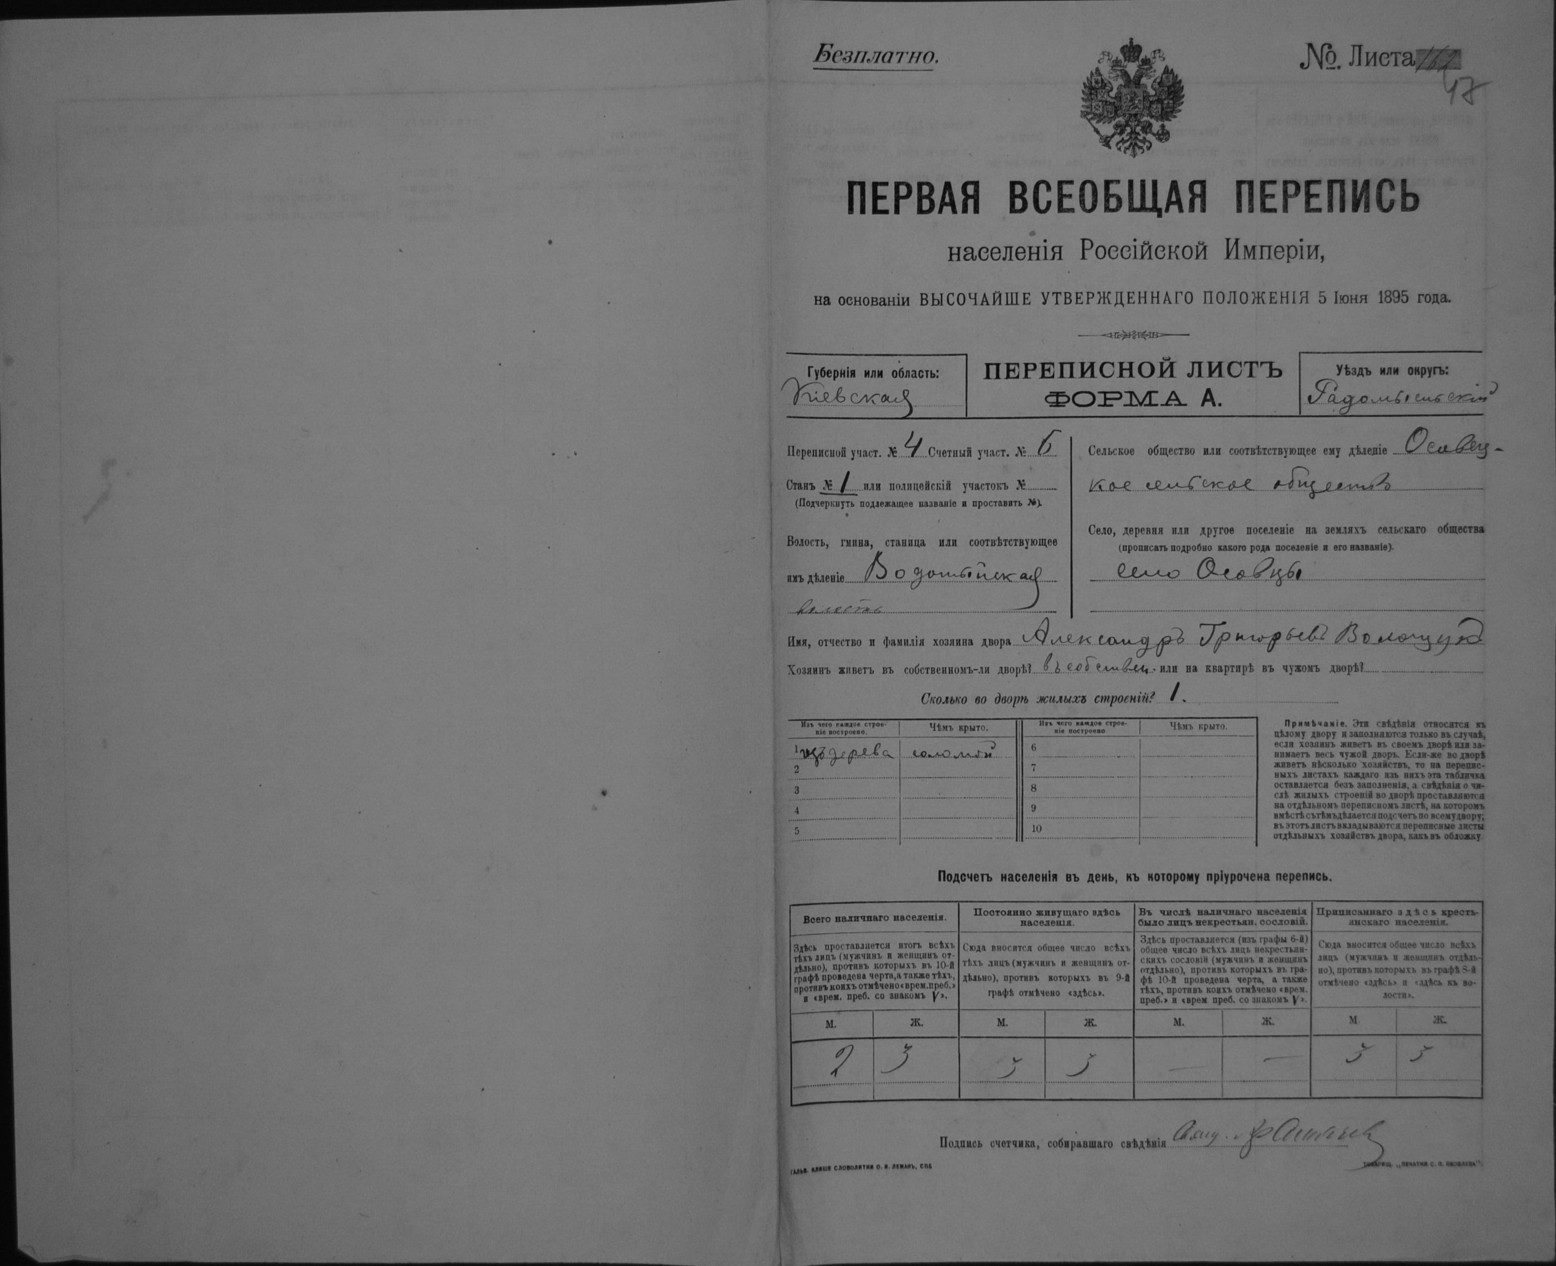 Безплатно.
№. Листа
47
ПЕРВАЯ ВСЕОБЩАЯ ПЕРЕПИСЬ
населенія Россійской Имперіи,
на основаніи ВЫСОЧАЙШЕ УТВЕРЖДЕННАГО ПОЛОЖЕНІЯ 5 Іюня 1895 года.
Губернія или область:
Кіевская
ПЕРЕПИСНОЙ ЛИСТЪ
ФОРМА А.
Уѣздъ или округъ:
Радомысльскій
Переписной участ. № 4 Счетный участ. № 6
Станъ № 1 или полицейскій участокъ №
(Подчеркнуть подлежащее названіе и проставить №).
Волость, гмина, станица или соотвѣтствующее
имъ дѣленіе Водотыйская
волость
Сельское общество или соотвѣтствующее ему дѣленіе Осовец-
кое сельское общество
Село, деревня или другое поселеніе на земляхъ сельскаго общества
(прописать подробно какого рода поселеніе и его названіе).
село Осовцы
Имя, отчество и фамилія хозяина двора Александръ Григорьевъ Волощукъ
Хозяинъ живетъ въ собственномъ-ли дворѣ? въ собствен. или на квартирѣ въ чужомъ дворѣ?
Сколько во дворѣ жилыхъ строеній? 1.
Изъ чего каждое строе-
ніе построено.
Чѣмъ крыто.
Изъ чего каждое строе-
ніе построено
Чѣмъ крыто.
1 изъ дерева соломой
2
3
4
5
6
7
8
9
10
Примѣчаніе. Эти свѣдѣнія относятся къ
цѣлому двору и заполняются только въ случаѣ,
если хозяинъ живетъ въ своемъ дворѣ или за-
нимаетъ весь чужой дворъ. Если-же во дворѣ
живетъ нѣсколько хозяйствъ, то на перепис-
ныхъ листахъ каждаго изъ нихъ эта табличка
оставляется безъ заполненія, а свѣдѣнія о чи-
слѣ жилыхъ строеній во дворѣ проставляются
на отдѣльномъ переписномъ листѣ, на которомъ
вмѣстѣ съ тѣмъ дѣлается подсчетъ по всему двору;
въ этотъ листъ вкладываются переписные листы
отдѣльныхъ хозяйствъ двора, какъ въ обложку.
Подсчетъ населенія въ день, къ которому пріурочена перепись.
Всего наличнаго населенія.
Здѣсь проставляется итогъ всѣхъ
тѣхъ лицъ (мужчинъ и женщинъ от-
дѣльно), противъ которыхъ въ 10-й
графѣ проведена черта, а также тѣхъ,
противъ коихъ отмѣчено «врем. преб.»
и «врем. преб. со знакомъ V».
Постоянно живущаго здѣсь
населенія.
Сюда вносится общее число всѣхъ
тѣхъ лицъ (мужчинъ и женщинъ от-
дѣльно), противъ которыхъ въ 9-й
графѣ отмѣчено «здѣсь».
Въ числѣ наличнаго населенія
было лицъ некрестьян. сословій.
Здѣсь проставляется (изъ графы 6-й)
общее число всѣхъ лицъ некрестьян-
скихъ сословій (мужчинъ и женщинъ
отдѣльно), противъ которыхъ въ гра-
фѣ 10-й проведена черта, а также
тѣхъ, противъ коихъ отмѣчено «врем.
преб.» и «врем преб. со знакомъ V».
Приписаннаго здѣсь кресть-
янскаго населенія.
Сюда вносится общее число всѣхъ
лицъ (мужчинъ и женщинъ отдѣль-
но), противъ которыхъ въ графѣ 8-й
отмѣчено «здѣсь» и «здѣсь въ во-
лости».
М. Ж. М. Ж. М. Ж. М Ж.
2 3 3 3 — — 3 3
Подпись счетчика, собиравшаго свѣдѣнія